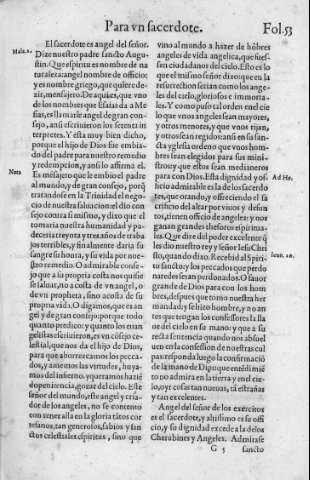 Para vn sacerdote.
Fol.53
El sacerdote es angel del señor.
Dize nuestro padre sancto Augu-
stin. Que spiritu es nombre de na
turaleza: angel nombre de officio:
y es nombre griego, que quiere de-
zir, mensajero. De aqui es, que vno
de los nombres que Esaias da a Me
sias, es llamarle angel de gran con-
sejo, ansi escriuieron los setenta in
terpretes. Y esta muy bien dicho,
porque el hijo de Dios fue embia-
do del padre para nuestro remedio
y redempcion, y ansi lo affirma el.
Es mesajero que le embio el padre
al mundo, y de gran consejo, porq̃
tratandose en la Trinidad el nego-
cio de nuestra saluacion el dio con
sejo contra si mismo, y dixo que el
tomaria nuestra humanidad y pa-
deceria treynta y tres años de traba
jos terribles, y finalmente daria su
sangre su honra, y su vida por nue-
stro remedio. O admirable conse-
jo que a su propria costa nos quiso
se saluar, no a costa de vn angel, o
de vn propheta, sino acosta de su
propria vida. O digamos, que es an
gel y de gran consejo: porque todo
quanto predico: y quanto los euan
gelistas escriuieron, es vn cõsejo ce-
lestial, que nos da el hijo de Dios,
para que aborrezcamos los pecca-
dos, y amemos las virtudes, huya-
mos del infierno, y queramos haziẽ
do penitencia, gozar del cielo. Este
señor del mundo, este angel y cria-
dor de los angeles, no se contento
con tener alla en la gloria tãtos cor
tesanos, tan generosos, sabios y san
ctos celestiales espiritus, sino que
vino al mundo a hazer de hõbres
angeles de vida angelica, que fues-
sen ciudadanos del cielo. Esto es lo
que el mismo señor dize que en la
resurrection serian como los ange-
les del cielo, gloriosos e immorta-
les. Y como puso tal orden en el cie
lo que vnos angeles sean mayores,
y otros menores, y que vnos rijan,
y otros sean regidos: ansi en su san-
cta yglesia ordeno que vnos hom-
bres sean elegidos para sus mini-
stros y que estos sean medianeros
para con Dios. Esta dignidad y of-
ficio admirable es la de los sacerdo
tes, que orando, y offreciendo el sa
crificio del altar por viuos y defun
tos, tienen officio de angeles: y nos
ganan grandes thesoros espiritua-
les. Que dire del poder excelente q̃
les dio nuestro rey y señor Iesu Chri
sto, quando dixo. Recebid al Spiri-
tu sancto y los peccados que perdo
naredes seran perdonados. O fauor
grande de Dios para con los hom-
bres, despues que tomo nuestra her
mandad y se hizo hombre, y no an-
tes que tengan los confessores la lla
ue del cielo en su mano: y que a su
recta sentencia quando nos absuel
uen en la confession de nuestras cul
pas responda luego la confirmaciõ
de la mano de Dios que en el dimiẽ
to no admira en la tierra y en el cie-
lo, oyr cosas tan nueuas, tã estrañas
y tan excelentes.
Angel del señor de los exercitos
es el sacerdote, y altissimo es su offi
cio, y su dignidad excede a la de los
Cherubines y Angeles. Admirase
G 5 sancto
Mala.2.
Nota
Ad He.
Ioan. 20.